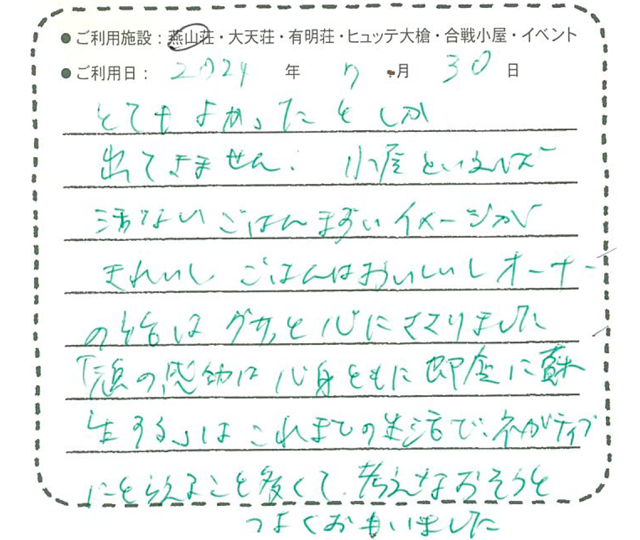 ●ご利用施設：燕山荘・大天荘・有明荘・ヒュッテ大槍・合戦小屋・イベント
●ご利用日： 2024 年 7 月 30 日
とてもよかったとしか
出てきません。 小屋といえば
活ない ごはんまずいイメージが
きれいし ごはんはおいしいしオーナー
の話は グサッと心にささりました
「頂の感動は 心身ともに 即座に蘇
生する」は これまでの生活で、ネガティブ
にとらえること多くて、考えなおそうと
つよくおもいました